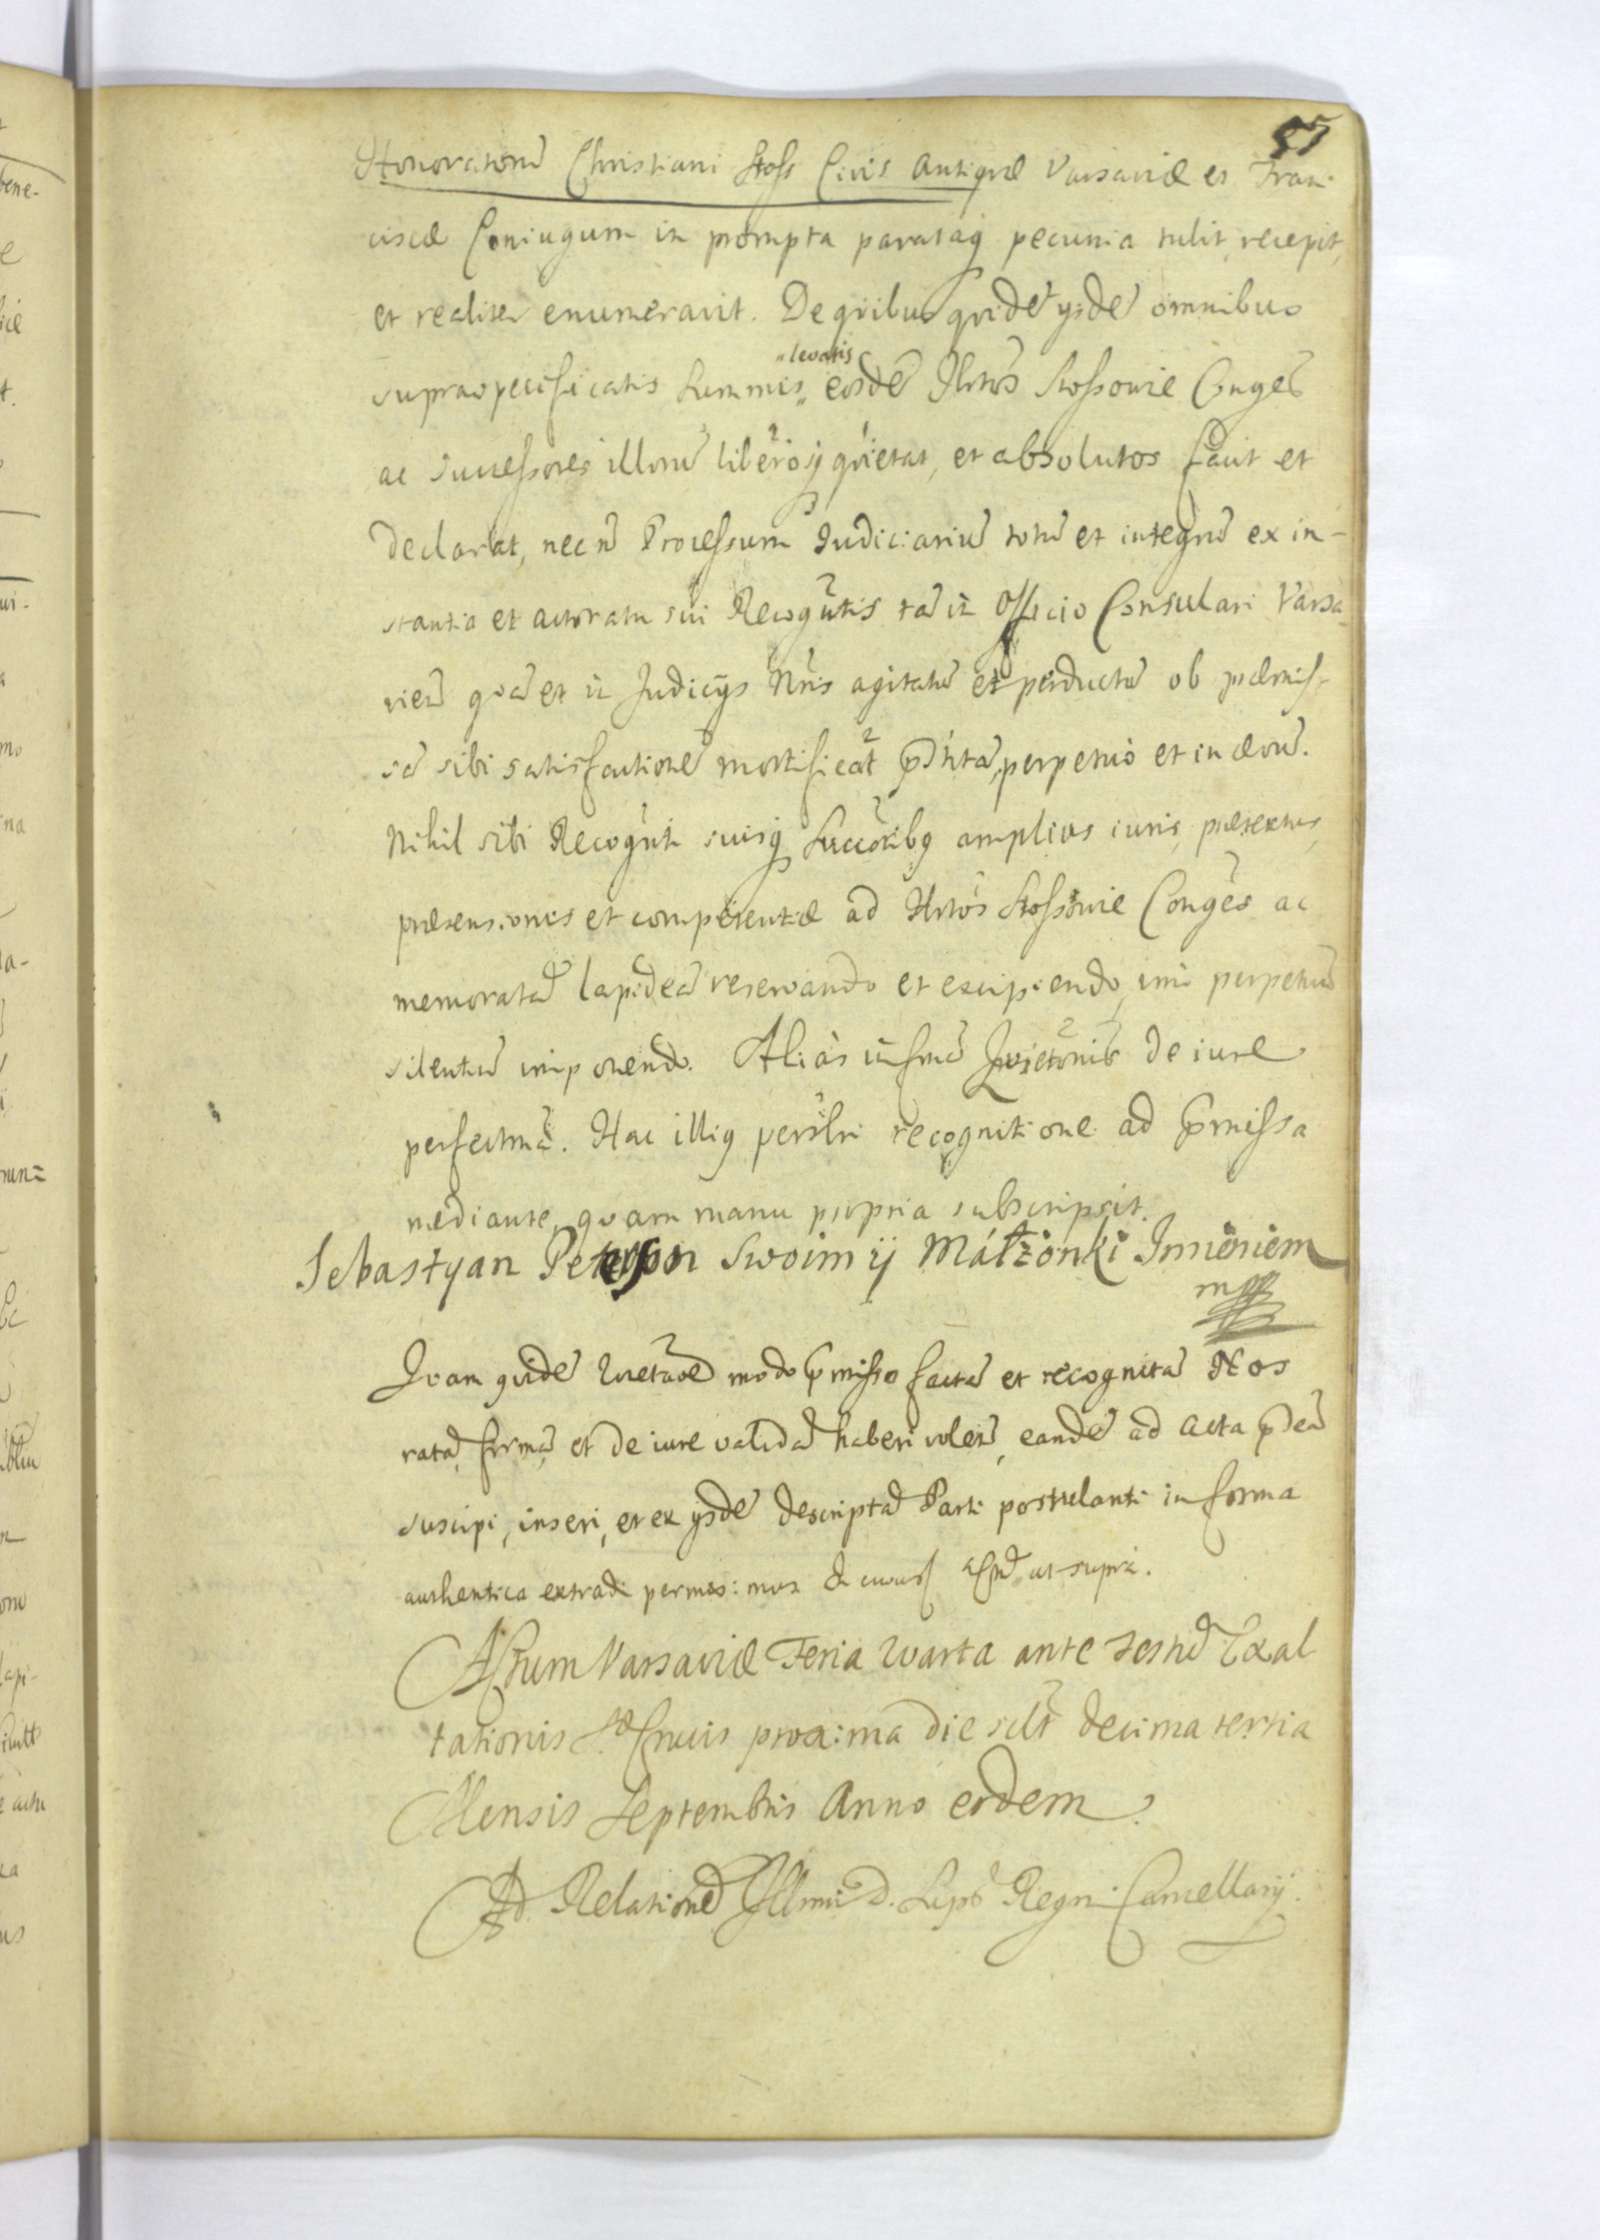 85
Honoratorū Christiani Stoss Civis Antiquæ Varsaviæ et Fran-
ciscæ Coniugum in prompta parataq̨ pecunia tulit, recepit,
et realiter enumeravit. De quibus quidē ijsdē omnibus
supraspecificatis summis, „levatis eosdē Hntos Stossowie Conges
ac successores illorū liberos q̨ quietat, et absolutos facit et
declarat, nec n̄ Processum Judiciariū totū et integrū ex in-
stantia et actoratu sui Recogntis tā in Officio Consulari Varsa-
vien̄ quā et in Judicijs Nris agitatū et perductū ob præmis-
sā sibi satisfactionē mortificat p̄ntā, perpetuò et in ævū.
Nihil sibi Recognti suisq̨ Succoribq amplius iuris, prætextus,
prætensionis et competentiæ ad Hntos Stossowie Conges ac
memoratā lapideā reservando et excipiendo, imò perpetuū
silentiū imponendo. Aliàs in formā Quietonis de iure
perfectmā. Hac illiq personli recognitione ad p̄missa
mediante, quam manu propria subscripsit.
Sebastyan Peterson Swoim ij Małżonki Imieniem
mpp
Quam quidē Quietaoē modo p̄misso factā et recognitā Nos
ratā, firmā, et de iure validā haberi volen̄, eandē ad Acta p̄sēā
suscipi, inseri, et ex ijsdē descriptā Parti postulanti in forma
authentica extradi permisimus ut supra.
Actum Varsaviæ Feria Quarta ante Festū Exal
tationis Stæ Crucis proxima die sclt decima tertia
Mensis Septembris Anno eodem.
Ad Relationē Illmi D. Sup̄ Regni Cancellarij.